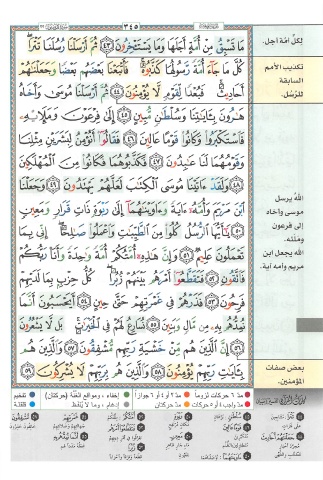 ٣٤٥
مَا تَسْبِقُ مِنْ أُمَّةٍ أَجَلَهَا وَمَا يَسْتَـْٔخِرُونَ ﴿٤٣﴾ ثُمَّ أَرْسَلْنَا رُسُلَنَا تَتْرَا
كُلَّ مَا جَآءَ أُمَّةً رَّسُولُهَا كَذَّبُوهُ فَأَتْبَعْنَا بَعْضَهُم بَعْضًا وَجَعَلْنَٰهُمْ
أَحَادِيثَ فَبُعْدًا لِّقَوْمٍ لَّا يُؤْمِنُونَ ﴿٤٤﴾ ثُمَّ أَرْسَلْنَا مُوسَىٰ وَأَخَاهُ
هَٰرُونَ بِـَٔايَٰتِنَا وَسُلْطَٰنٍ مُّبِينٍ ﴿٤٥﴾ إِلَىٰ فِرْعَوْنَ وَمَلَإِيهِۦ
فَٱسْتَكْبَرُوا۟ وَكَانُوا۟ قَوْمًا عَالِينَ ﴿٤٦﴾ فَقَالُوٓا۟ أَنُؤْمِنُ لِبَشَرَيْنِ مِثْلِنَا
وَقَوْمُهُمَا لَنَا عَٰبِدُونَ ﴿٤٧﴾ فَكَذَّبُوهُمَا فَكَانُوا۟ مِنَ ٱلْمُهْلَكِينَ
﴿٤٨﴾ وَلَقَدْ ءَاتَيْنَا مُوسَى ٱلْكِتَٰبَ لَعَلَّهُمْ يَهْتَدُونَ ﴿٤٩﴾ وَجَعَلْنَا
ٱبْنَ مَرْيَمَ وَأُمَّهُۥٓ ءَايَةً وَءَاوَيْنَٰهُمَآ إِلَىٰ رَبْوَةٍ ذَاتِ قَرَارٍ وَمَعِينٍ
﴿٥٠﴾ يَٰٓأَيُّهَا ٱلرُّسُلُ كُلُوا۟ مِنَ ٱلطَّيِّبَٰتِ وَٱعْمَلُوا۟ صَٰلِحًا إِنِّى بِمَا
تَعْمَلُونَ عَلِيمٌ ﴿٥١﴾ وَإِنَّ هَٰذِهِۦٓ أُمَّتُكُمْ أُمَّةً وَٰحِدَةً وَأَنَا۠ رَبُّكُمْ
فَٱتَّقُونِ ﴿٥٢﴾ فَتَقَطَّعُوٓا۟ أَمْرَهُم بَيْنَهُمْ زُبُرًا كُلُّ حِزْبٍۭ بِمَا لَدَيْهِمْ
فَرِحُونَ ﴿٥٣﴾ فَذَرْهُمْ فِى غَمْرَتِهِمْ حَتَّىٰ حِينٍ ﴿٥٤﴾ أَيَحْسَبُونَ أَنَّمَا
نُمِدُّهُم بِهِۦ مِن مَّالٍ وَبَنِينَ ﴿٥٥﴾ نُسَارِعُ لَهُمْ فِى ٱلْخَيْرَٰتِ بَل لَّا يَشْعُرُونَ
﴿٥٦﴾ إِنَّ ٱلَّذِينَ هُم مِّنْ خَشْيَةِ رَبِّهِم مُّشْفِقُونَ ﴿٥٧﴾ وَٱلَّذِينَ هُم
بِـَٔايَٰتِ رَبِّهِمْ يُؤْمِنُونَ ﴿٥٨﴾ وَٱلَّذِينَ هُم بِرَبِّهِمْ لَا يُشْرِكُونَ ﴿٥٩﴾
لكل أمة أجل.
تكذيب الأمم
السابقة
للرسل.
الله يرسل
موسى وأخاه
إلى فرعون
وملئه.
الله يجعل ابن
مريم وأمه آية.
بعض صفات
المؤمنين.